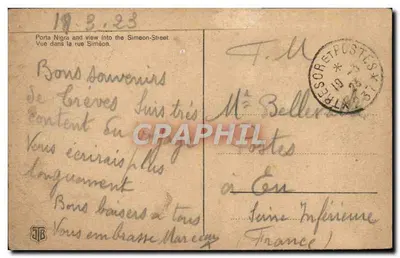 19-3-23
Porta Nigra and view into the Simeon-Street
Vue dans la rue Siméon.
Bons souvenirs
de Trèves Suis très
content du
Vous écrirais plus
longuement
Bons baisers à tous
Vous embrasse Marceau
F.M
TRESOR ET POSTES
19 - 3
23
* 237 *
Me Bellev
Postes
à Eu
Seine Inférieure
(France)
CPARAMA